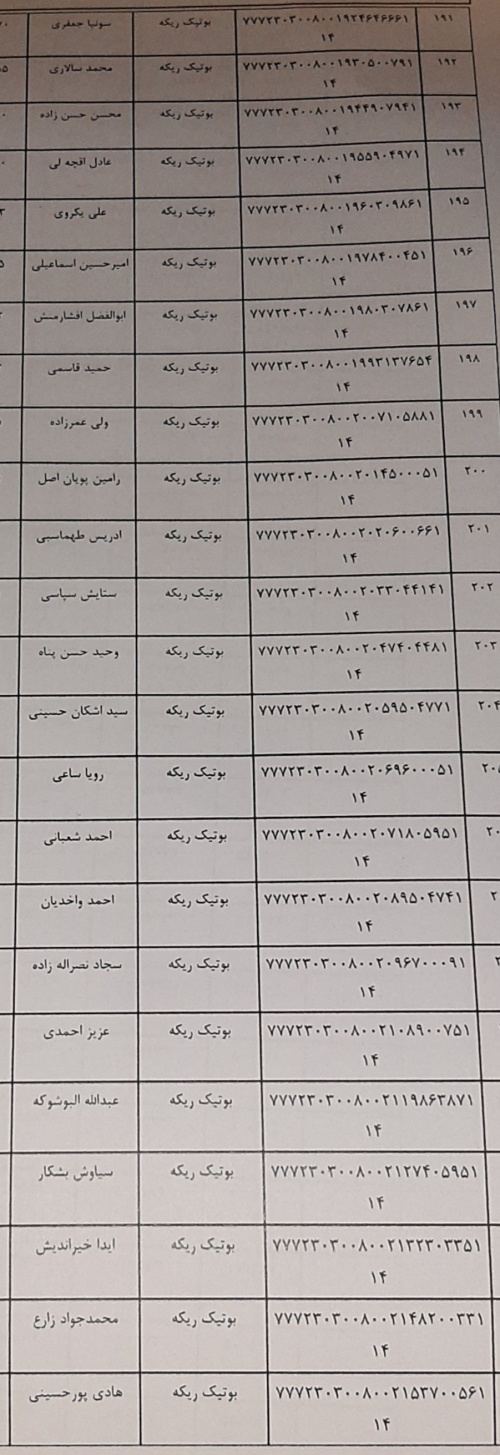 ۱۹۱ ۷۷۷۲۳۰۳۰۰۸۰۰۱۹۲۴۶۴۶۶۶۱ بوتیک ریکه سونیا جعفری
۱۴
۱۹۲ ۷۷۷۲۳۰۳۰۰۸۰۰۱۹۳۰۵۰۰۷۹۱ بوتیک ریکه محمد سالاری
۱۴
۱۹۳ ۷۷۷۲۳۰۳۰۰۸۰۰۱۹۴۴۹۰۷۹۴۱ بوتیک ریکه محسن حسن زاده
۱۴
۱۹۴ ۷۷۷۲۳۰۳۰۰۸۰۰۱۹۵۵۹۰۴۹۷۱ بوتیک ریکه عادل اقچه لی
۱۴
۱۹۵ ۷۷۷۲۳۰۳۰۰۸۰۰۱۹۶۰۳۰۹۸۶۱ بوتیک ریکه علی یکروی
۱۴
۱۹۶ ۷۷۷۲۳۰۳۰۰۸۰۰۱۹۷۸۴۰۰۴۵۱ بوتیک ریکه امیرحسین اسماعیلی
۱۴
۱۹۷ ۷۷۷۲۳۰۳۰۰۸۰۰۱۹۸۰۳۰۷۸۶۱ بوتیک ریکه ابوالفضل افشارمنش
۱۴
۱۹۸ ۷۷۷۲۳۰۳۰۰۸۰۰۱۹۹۳۱۳۷۶۵۴ بوتیک ریکه حمید قاسمی
۱۴
۱۹۹ ۷۷۷۲۳۰۳۰۰۸۰۰۲۰۰۷۱۰۵۸۸۱ بوتیک ریکه ولی عمرزاده
۱۴
۲۰۰ ۷۷۷۲۳۰۳۰۰۸۰۰۲۰۱۴۵۰۰۰۵۱ بوتیک ریکه رامین پویان اصل
۱۴
۲۰۱ ۷۷۷۲۳۰۳۰۰۸۰۰۲۰۲۰۶۰۰۶۶۱ بوتیک ریکه ادریس طهماسبی
۱۴
۲۰۲ ۷۷۷۲۳۰۳۰۰۸۰۰۲۰۳۳۰۴۴۱۴۱ بوتیک ریکه ستایش سپاسی
۱۴
۲۰۳ ۷۷۷۲۳۰۳۰۰۸۰۰۲۰۴۷۴۰۴۴۸۱ بوتیک ریکه وحید حسن پناه
۱۴
۲۰۴ ۷۷۷۲۳۰۳۰۰۸۰۰۲۰۵۹۵۰۴۷۷۱ بوتیک ریکه سید اشکان حسینی
۱۴
۷۷۷۲۳۰۳۰۰۸۰۰۲۰۶۹۶۰۰۰۵۱ بوتیک ریکه رویا ساعی
۱۴
۷۷۷۲۳۰۳۰۰۸۰۰۲۰۷۱۸۰۵۹۵۱ بوتیک ریکه احمد شعبانی
۱۴
۷۷۷۲۳۰۳۰۰۸۰۰۲۰۸۹۵۰۴۷۴۱ بوتیک ریکه احمد واخدیان
۱۴
۷۷۷۲۳۰۳۰۰۸۰۰۲۰۹۶۷۰۰۰۹۱ بوتیک ریکه سجاد نصراله زاده
۱۴
۷۷۷۲۳۰۳۰۰۸۰۰۲۱۰۸۹۰۰۷۵۱ بوتیک ریکه عزیز احمدی
۱۴
۷۷۷۲۳۰۳۰۰۸۰۰۲۱۱۹۸۶۳۸۷۱ بوتیک ریکه عبدالله البوشوکه
۱۴
۷۷۷۲۳۰۳۰۰۸۰۰۲۱۲۷۴۰۵۹۵۱ بوتیک ریکه سیاوش بشکار
۱۴
۷۷۷۲۳۰۳۰۰۸۰۰۲۱۳۲۳۰۳۳۵۱ بوتیک ریکه ایدا خیراندیش
۱۴
۷۷۷۲۳۰۳۰۰۸۰۰۲۱۴۸۲۰۰۳۳۱ بوتیک ریکه محمدجواد زارع
۱۴
۷۷۷۲۳۰۳۰۰۸۰۰۲۱۵۳۷۰۰۵۶۱ بوتیک ریکه هادی پورحسینی
۱۴